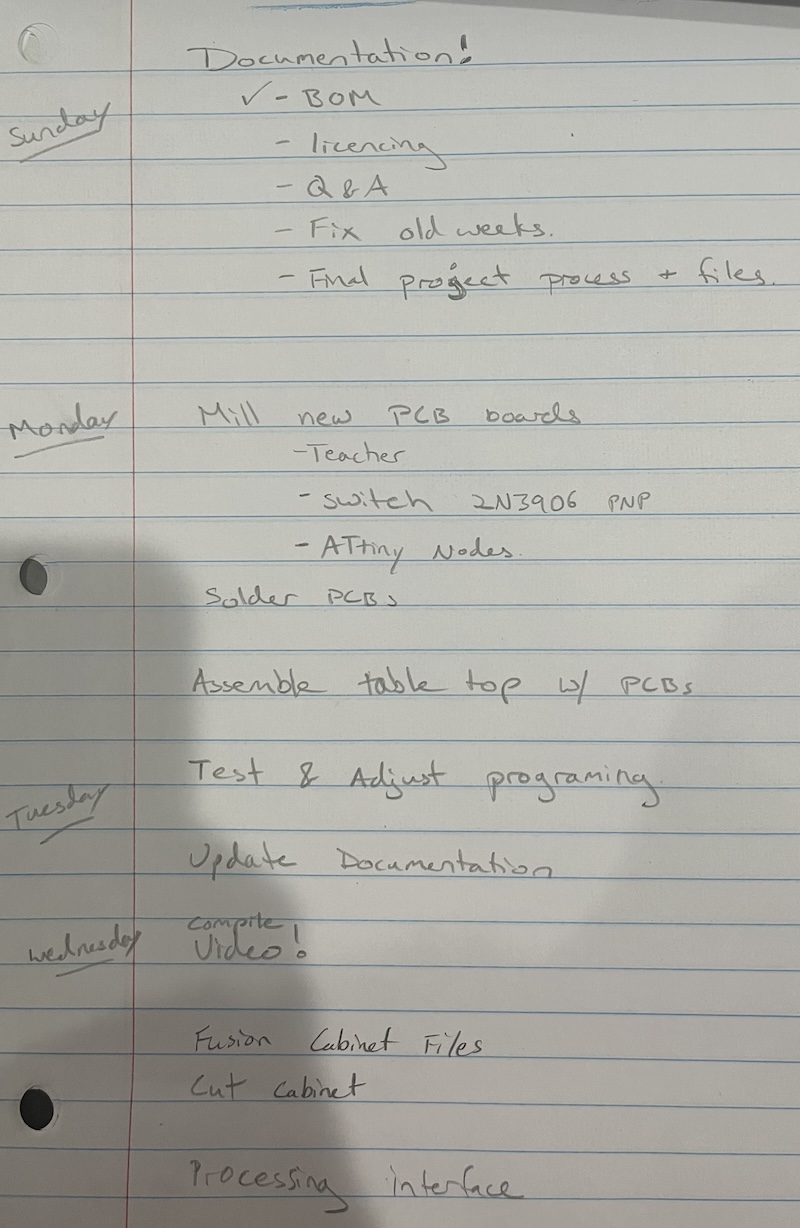 Documentation!
✓ - BOM
Sunday
- licencing
- Q & A
- Fix old weeks.
- Final project process + files.
Monday
Mill new PCB boards
- Teacher
- switch 2N3906 PNP
- ATtiny Nodes.
Solder PCBs
Assemble table top w/ PCBs
Test & Adjust programing.
Tuesday
Update Documentation
Wednesday
Compile
Video!
Fusion Cabinet Files
Cut Cabinet
Processing interface